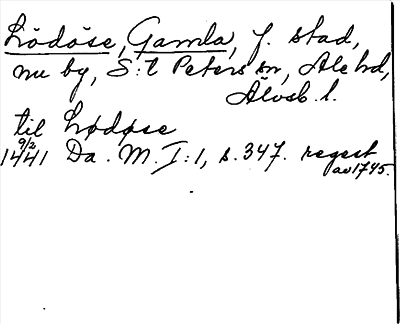 Lödöse, Gamla, f. stad,
nu by, S:t Peters sn, Ale hd,
Älvsb. l.
til Lødøse
9/2
1441 Da. M. I:1, s. 347. regest
av 1745.